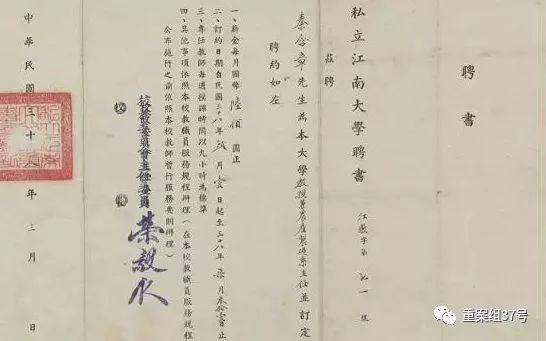 聘書
私立江南大學聘書
江教字第七一號
茲聘
秦含章先生為本大學教授兼農產製造系主任並訂定
聘約如左
一、薪金每月國幣陸佰圓正
二、訂約日期自民國三十八年貳月壹日起至三十八年柒月叁拾壹日止
三、專任教師每週授課時間以九小時為標準
四、其他事項依照本校教職員服務規程辦理(在本校教職員服務規程
公布施行之前依照本校教師暫行服務要則辦理)
校務委員會主任委員 榮毅仁
中華民國三十八年三月 日
重案组37号